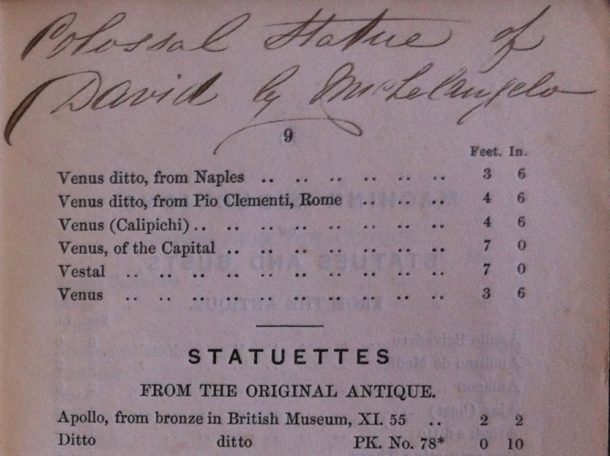 Colossal Statue of
David by Michelangelo
9
Feet. In.
Venus ditto, from Naples .. .. .. .. .. .. 3 6
Venus ditto, from Pio Clementi, Rome .. .. .. .. 4 6
Venus (Calipichi) .. .. .. .. .. .. .. .. 4 6
Venus, of the Capital .. .. .. .. .. .. .. 7 0
Vestal .. .. .. .. .. .. .. .. .. .. 7 0
Venus .. .. .. .. .. .. .. .. .. .. 3 6
STATUETTES
FROM THE ORIGINAL ANTIQUE.
Apollo, from bronze in British Museum, XI. 55 .. 2 2
Ditto ditto PK. No. 78* 0 10